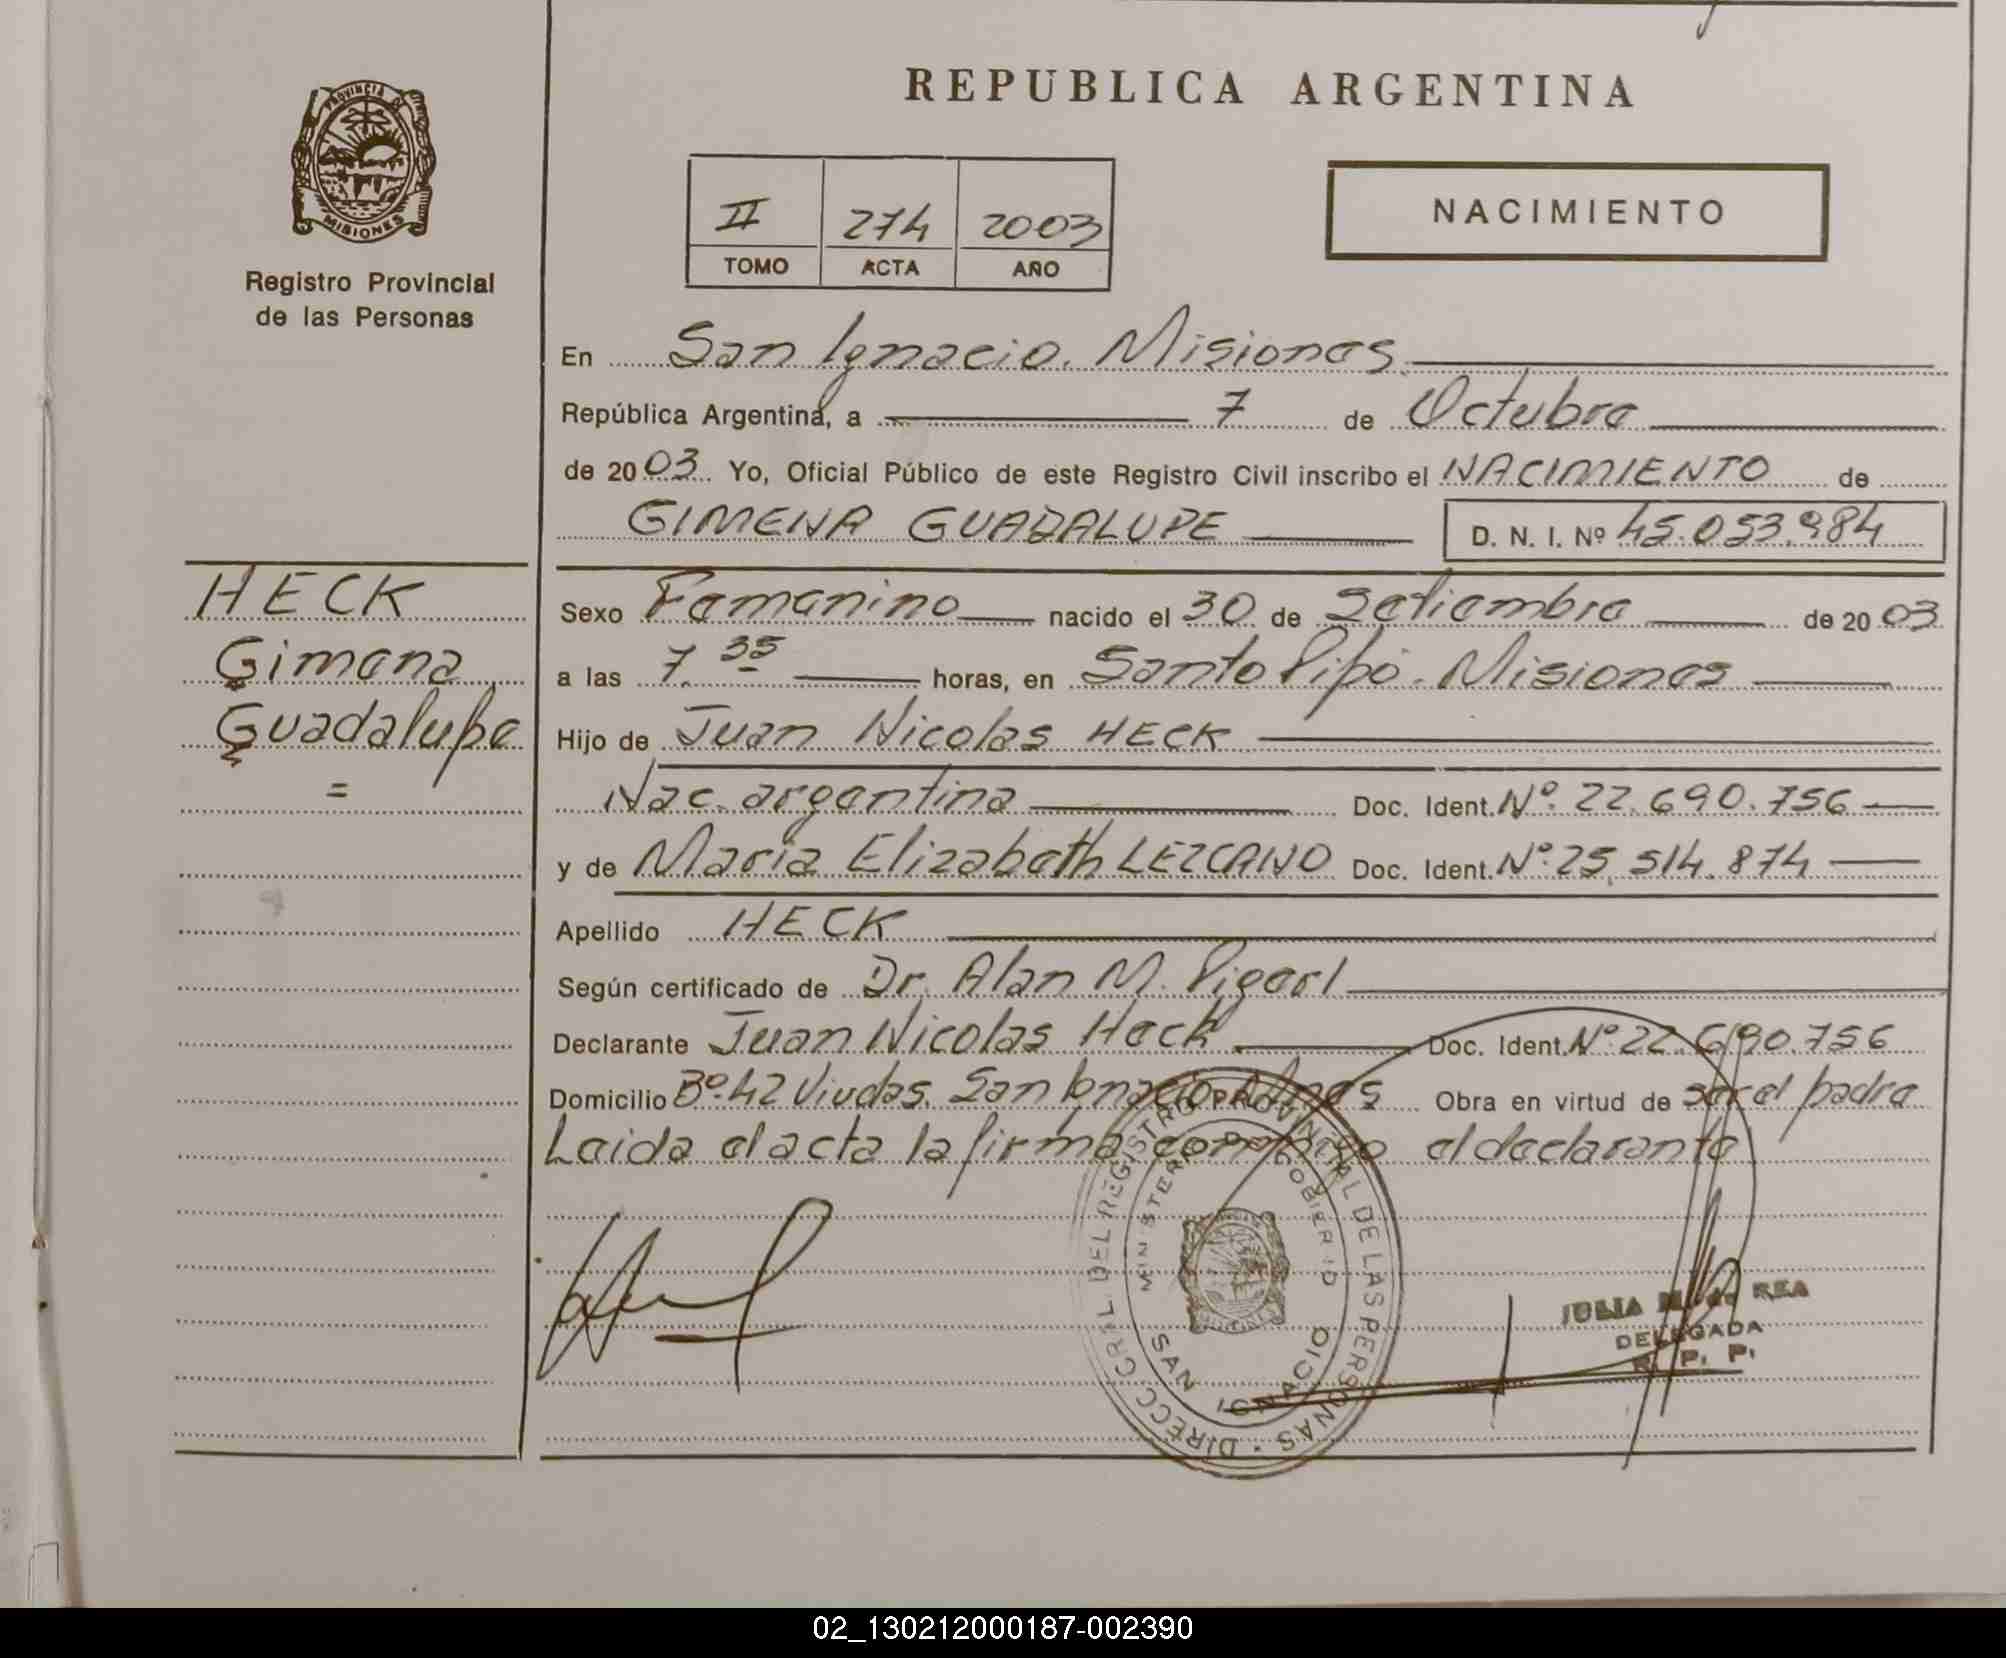 REPUBLICA ARGENTINA
PROVINCIA DE
MISIONES
Registro Provincial
de las Personas
II 274 2003
TOMO ACTA AÑO
NACIMIENTO
En San Ignacio. Misiones
República Argentina, a 7 de Octubre
de 2003 Yo, Oficial Público de este Registro Civil inscribo el NACIMIENTO de
GIMENA GUADALUPE D. N. I. Nº 45.053.984
HECK
Gimena
Guadalupe
=
Sexo Femenino nacido el 30 de Setiembre de 2003
a las 7.35 horas, en Santo Pipó. Misiones
Hijo de Juan Nicolas HECK
Nac. argentina Doc. Ident. Nº. 22.690.756
y de Maria Elizabeth LEZCANO Doc. Ident. Nº. 25.514.874
Apellido HECK
Según certificado de Dr. Alan M.
Declarante Juan Nicolas Heck Doc. Ident. Nº 22.690.756
Domicilio Bº. 42 Viudas. San Ignacio Mnes Obra en virtud de ser el padre
Leida el acta la firma conmigo el declarante
DIRECC GRAL. DEL REGISTRO PROVINCIAL DE LAS PERSONAS
MINISTERIO DE GOBIERNO
SAN IGNACIO
JULIA M. de REA
DELEGADA
R. P. P.
02_130212000187-002390